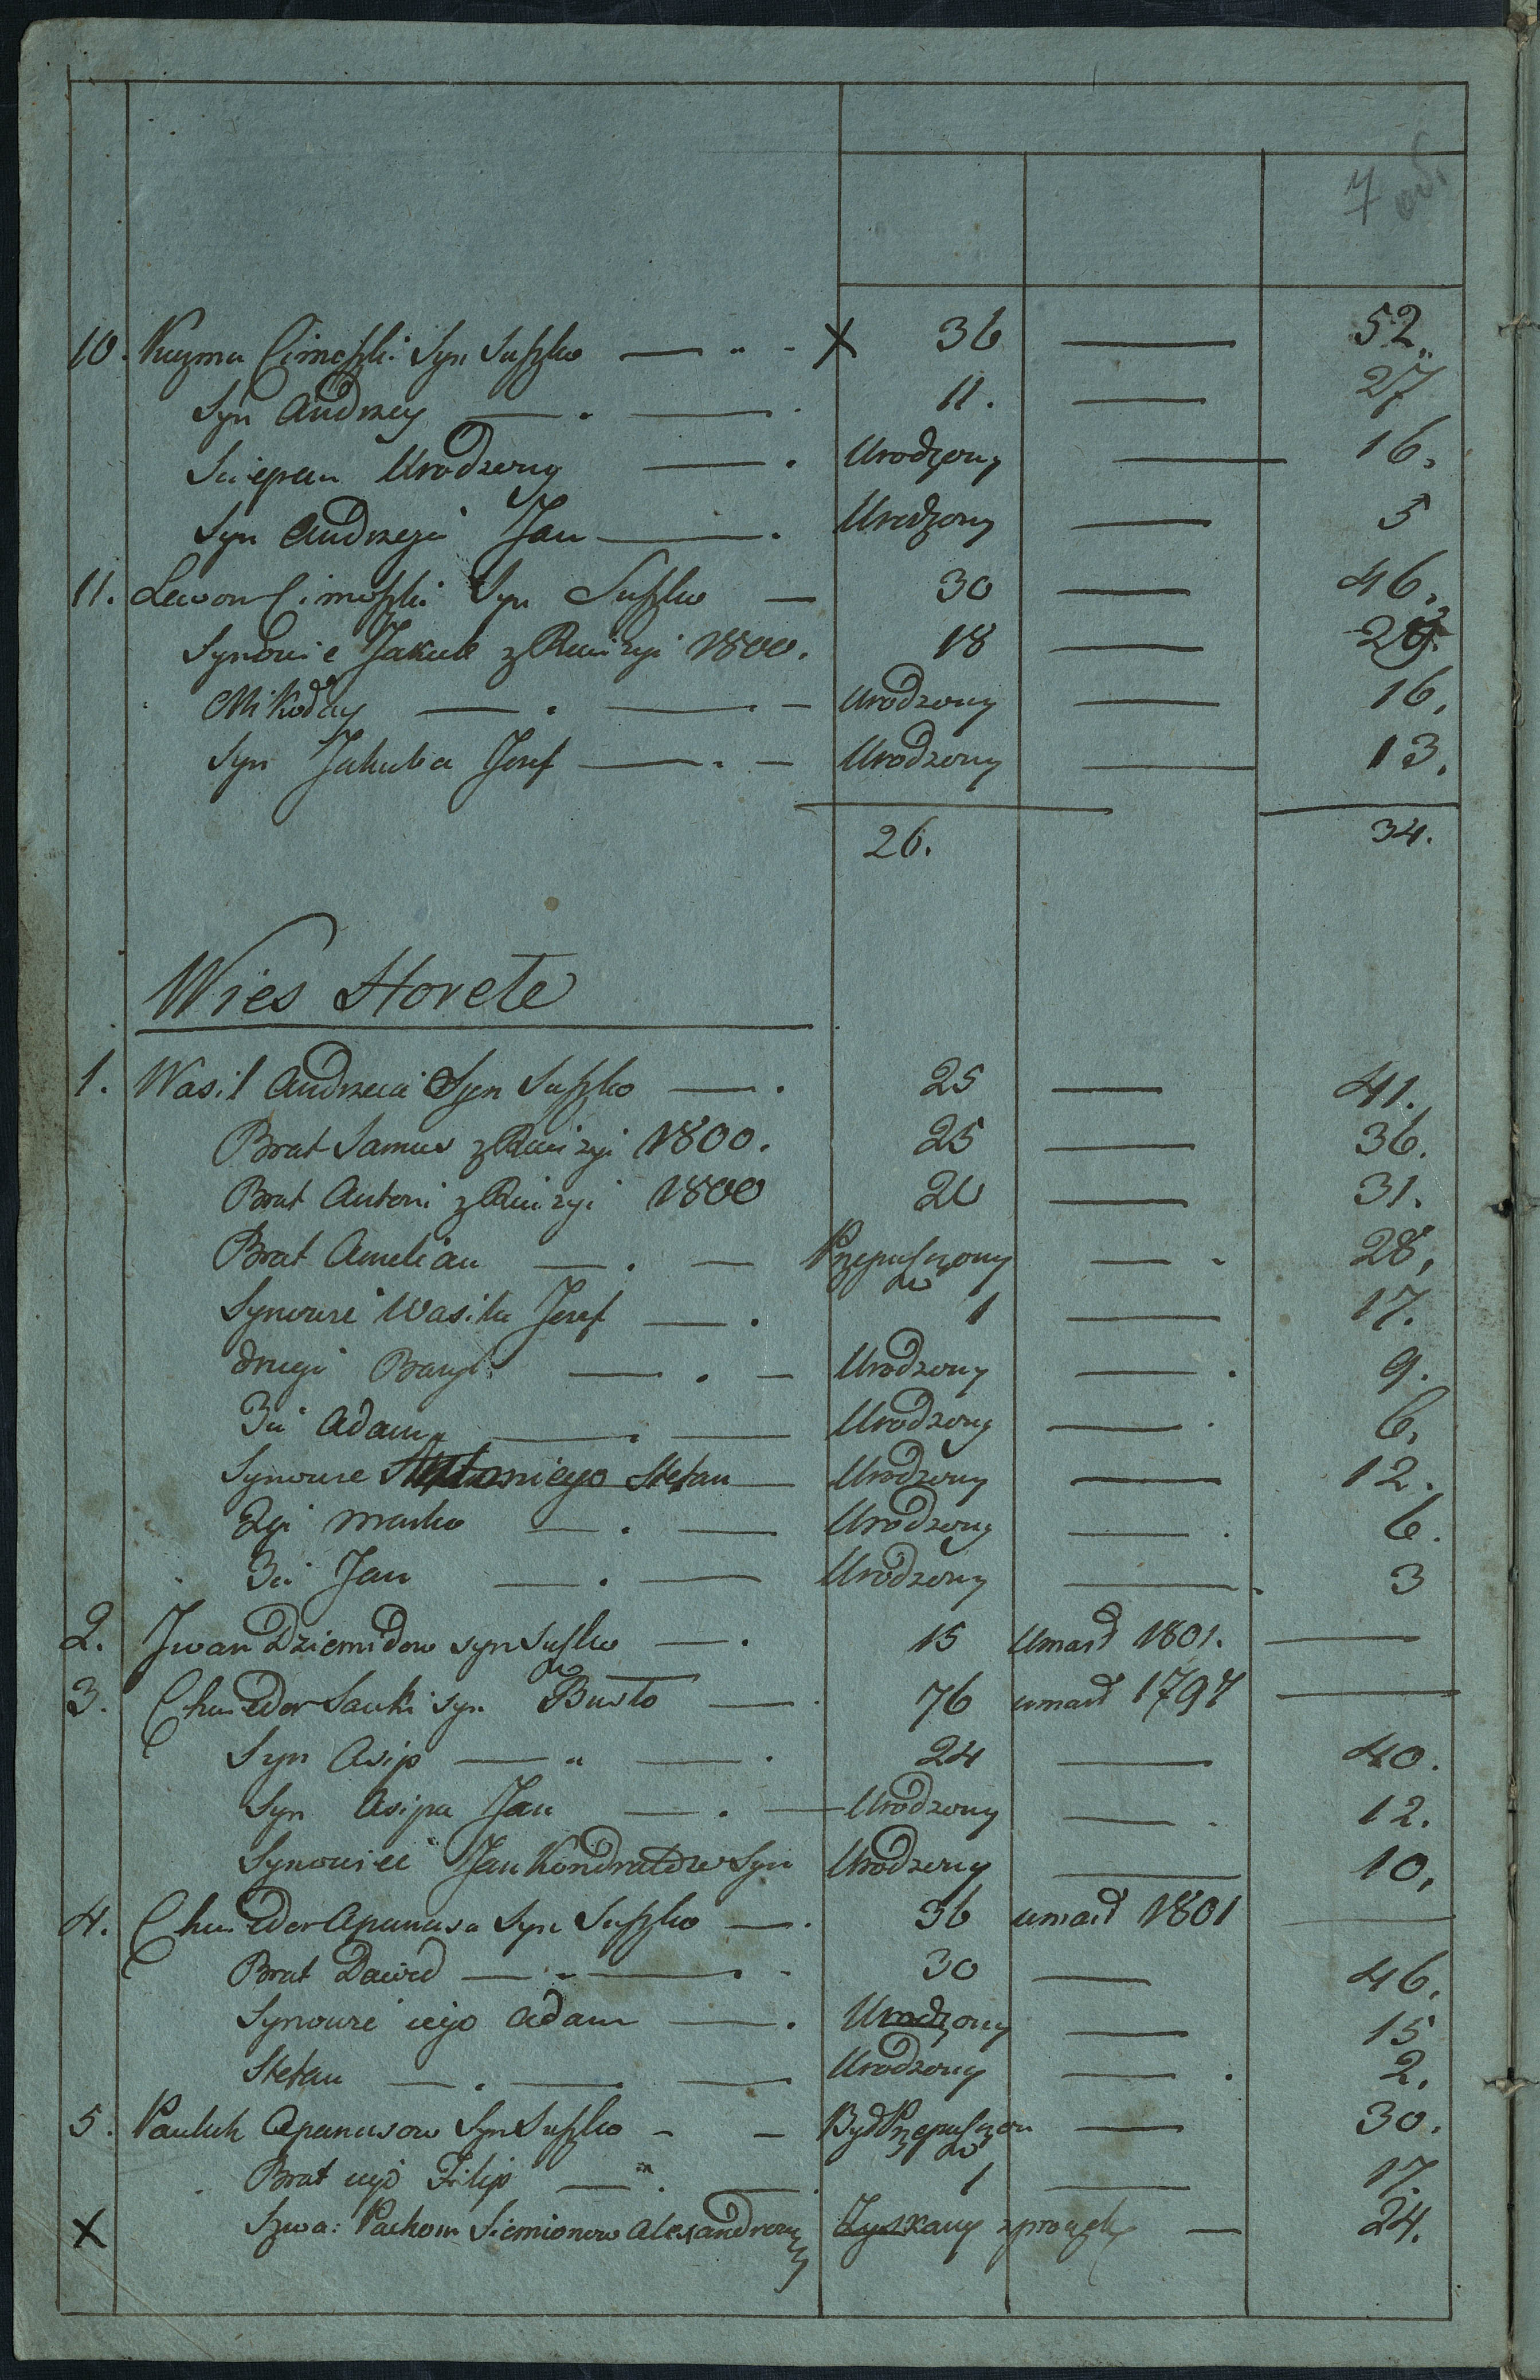 7 od.
10. Kuzma Cimoszki Syn Suszko — „ - X 36 — 52„
Syn Andrzey — . — . 11. — 27
Sciepan Urodzony — . Urodzony — 16.
Syn Andrzeja Jan — . Urodzony — 5
11. Lewon Cimoszki Syn Suszko — 30 — 46.
Synowie Jakub z Rewizyi 1800. 18 — 29.
Mikołay — . — . — Urodzony — 16.
Syn Jakuba Josef — . — Urodzony — 13.
26. 34.
Wies Horete
1. Wasil Andrzeia Syn Suszko — . 25 — 41.
Brat Samus z Rewizyi 1800. 25 — 36.
Brat Antoni z Rewizyi 1800 20 — 31.
Brat Amelian — . — Przepuszczony — - 28,
Synowie Wasila Josef — . 1 — 17.
drugi — . — Urodzony — . 9.
3ci Adam — . — Urodzony — . 6,
Synowie Antoniego Stefan — Urodzony — 12.
2gi Marko — . — Urodzony — . 6.
3ci Jan — . — Urodzony — . 3
2. Jwan Dziemidow syn Suszko — . 15 umarł 1801. —
3. Chwiedor Sauki syn Busło — . 76 umarł 1797 —
Syn Asip — „ — . 24 — 40.
Syn Asipa Jan — . — Urodzony — . 12.
Synowiec Jan Kondratow Syn Urodzony — 10,
4. Chwiedor Apanasa Syn Suszko — . 36 umarł 1801 —
Brat Dawid — - — . - 30 — 46.
Synowie iego Adam — . Urodzony — 15
Stefan — . — . — Urodzony — . 2.
5. Pauluk Apanasow Syn Suszko - — Był Przepuszczon — 30.
Brat iego Filip — „ . — . 1 — 17.
X Szwa: Pachom Siemionow Alexandrow Zyskany — 24.